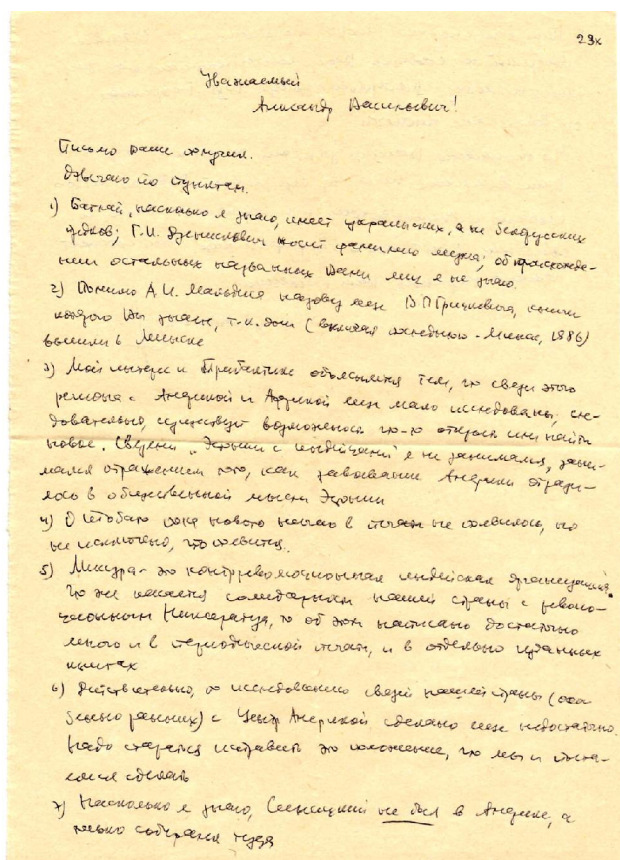 23к
Уважаемый
Александр Васильевич!
Письмо Ваше получил.
Отвечаю по пунктам.
1) Батлай, насколько я знаю, имеет украинских, а не белорусских
предков; Г.И. носит фамилию мужа; о происхожде-
нии остальных названных Вами лиц я не знаю.
2) Помимо А.И. Мальдиса назову еще В.П. Грицкевича, книги
которого Вы знаете, т.к. они (включая последнюю - Минск, 1986)
вышли в Минске
3) Мой интерес к Прибалтике объясняется тем, что связи этого
региона с Америкой и Африкой еще мало исследованы; сле-
довательно, существует возможность что-то открыть или найти
новое. Связями "Эстонии с индейцами" я не занимался, зани-
мался отражением того, как завоевание Америки отрази-
лось в общественной мысли Эстонии
4) О пока нового ничего в печати не появилось, но
не исключено, что появится.
5) Мисура - это контрреволюционная индейская организация.
Что же касается солидарности нашей страны с револю-
ционным Никарагуа, то об этом написано достаточно
много и в периодической печати, и в отдельно изданных
книгах
6) Действительно, по исследованию связей нашей страны (
) с Центр. Америкой сделано еще недостаточно.
Надо стараться исправить это положение, что мы и пыта-
емся сделать
7) Насколько я знаю, не был в Америке, а
только собирался туда